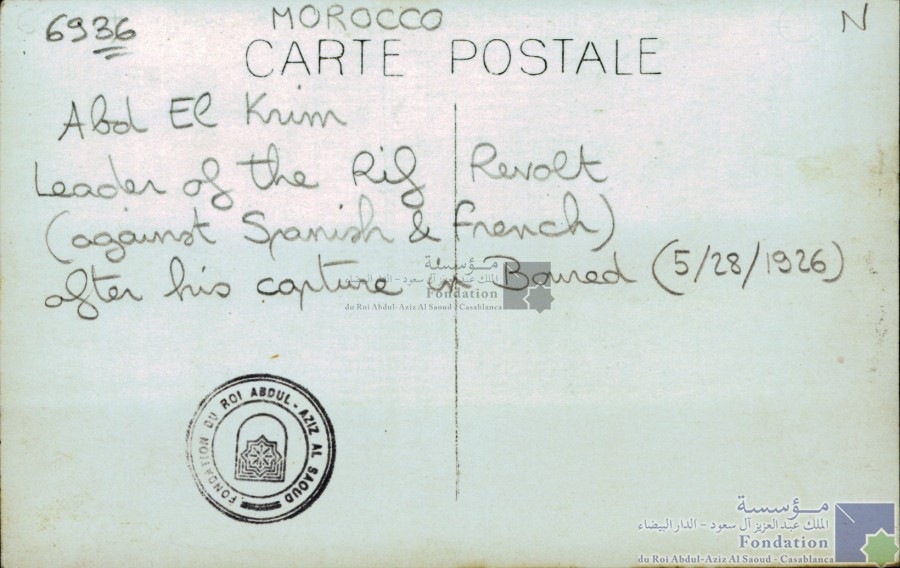 6936
MOROCCO
N
CARTE POSTALE
Abd El Krim
Leader of the Rif Revolt
(against Spanish & French)
after his capture in Boured (5/28/1926)
مؤسسة
الملك عبد العزيز آل سعود - الدار البيضاء
Fondation
du Roi Abdul-Aziz Al Saoud - Casablanca
FONDATION DU ROI ABDUL-AZIZ AL SAOUD
مؤسسة
الملك عبد العزيز آل سعود - الدار البيضاء
Fondation
du Roi Abdul-Aziz Al Saoud - Casablanca